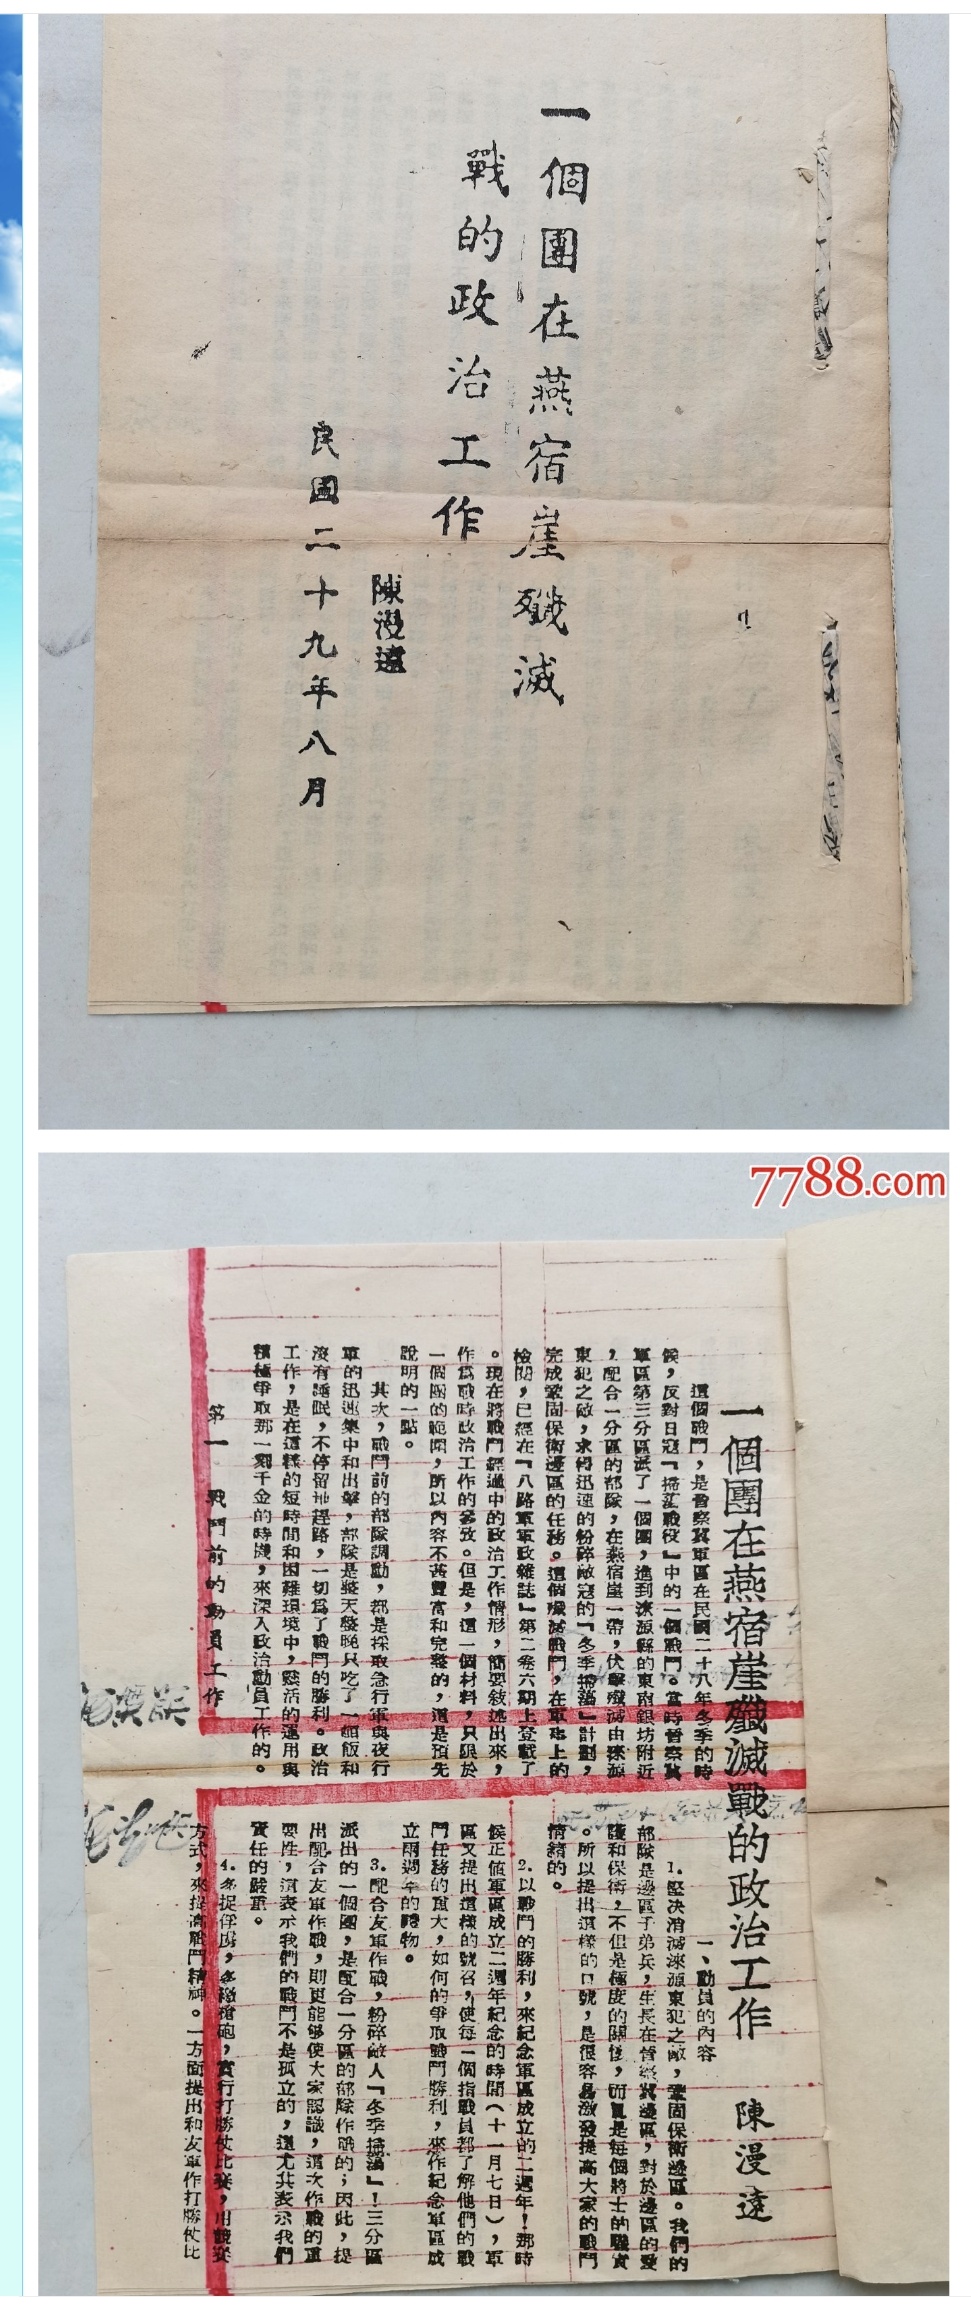 一個團在燕宿崖殲滅
戰的政治工作
陳漫遠
民國二十九年八月
7788.com
一個團在燕宿崖殲滅戰的政治工作　陳漫遠
這個戰鬥，是晉察冀軍區在民國二十八年冬季的時
候，反對日寇『掃蕩戰役』中的一個戰鬥。當時晉察冀
軍區第三分區派了一個團，進到淶源縣的東南銀坊附近
，配合一分區的部隊，在燕宿崖一帶，伏擊殲滅由淶源
東犯之敵，求得迅速的粉碎敵寇的『冬季掃蕩』計劃，
完成鞏固保衛邊區的任務。這個殲滅戰鬥，在軍事上的
檢閱，已經在『八路軍軍政雜誌』第二卷六期上登載了
。現在將戰鬥經過中的政治工作情形，簡要敘述出來，
作為戰時政治工作的參攷。但是，這一個材料，只限於
一個團的範圍，所以內容不甚豐富和完整的，這是預先
說明的一點。
其次，戰鬥前的部隊調動，都是採取急行軍與夜行
軍的迅速集中和出擊，部隊是整天整晚只吃了一頓飯和
沒有睡眠，不停留地趕路，一切為了戰鬥的勝利。政治
工作，是在這樣的短時間和困難環境中，靈活的運用與
積極爭取那一刻千金的時機，來深入政治動員工作的。
第一　戰鬥前的動員工作
一、動員的內容
1.堅決消滅淶源東犯之敵，鞏固保衛邊區。我們的
部隊是邊區子弟兵，生長在晉察冀邊區，對於邊區的愛
護和保衛，不但是極度的關懷，而且是每個將士的職責
。所以提出這樣的口號，是很容易激發提高大家的戰鬥
情緒的。
2.以戰鬥的勝利，來紀念軍區成立的二週年！那時
候正值軍區成立二週年紀念的時間（十一月七日），軍
區又提出這樣的號召，使每一個指戰員都了解他們的戰
鬥任務的重大，如何的爭取戰鬥勝利，來作紀念軍區成
立兩週年的禮物。
3.配合友軍作戰，粉碎敵人『冬季掃蕩』！三分區
派出的一個團，是配合一分區的部隊作戰的；因此，提
出配合友軍作戰，則更能够使大家認識，這次作戰的重
要性，這表示我們的戰鬥不是孤立的，這尤其表示我們
責任的嚴重。
4.多捉俘虜，多繳槍砲，實行打勝仗比賽，用競賽
方式，來提高戰鬥精神。一方面提出和友軍作打勝仗比